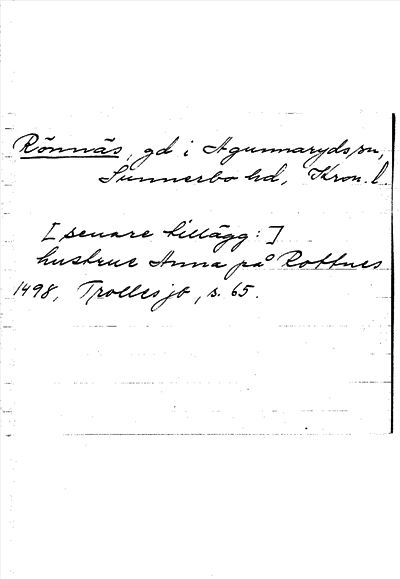 Rönnäs, gd i Agunnaryds sn,
Sunnerbo hd, Kron. l
[senare tillägg:]
hustrue Anna på Rottnes
1498, Trollesjö, s. 65.